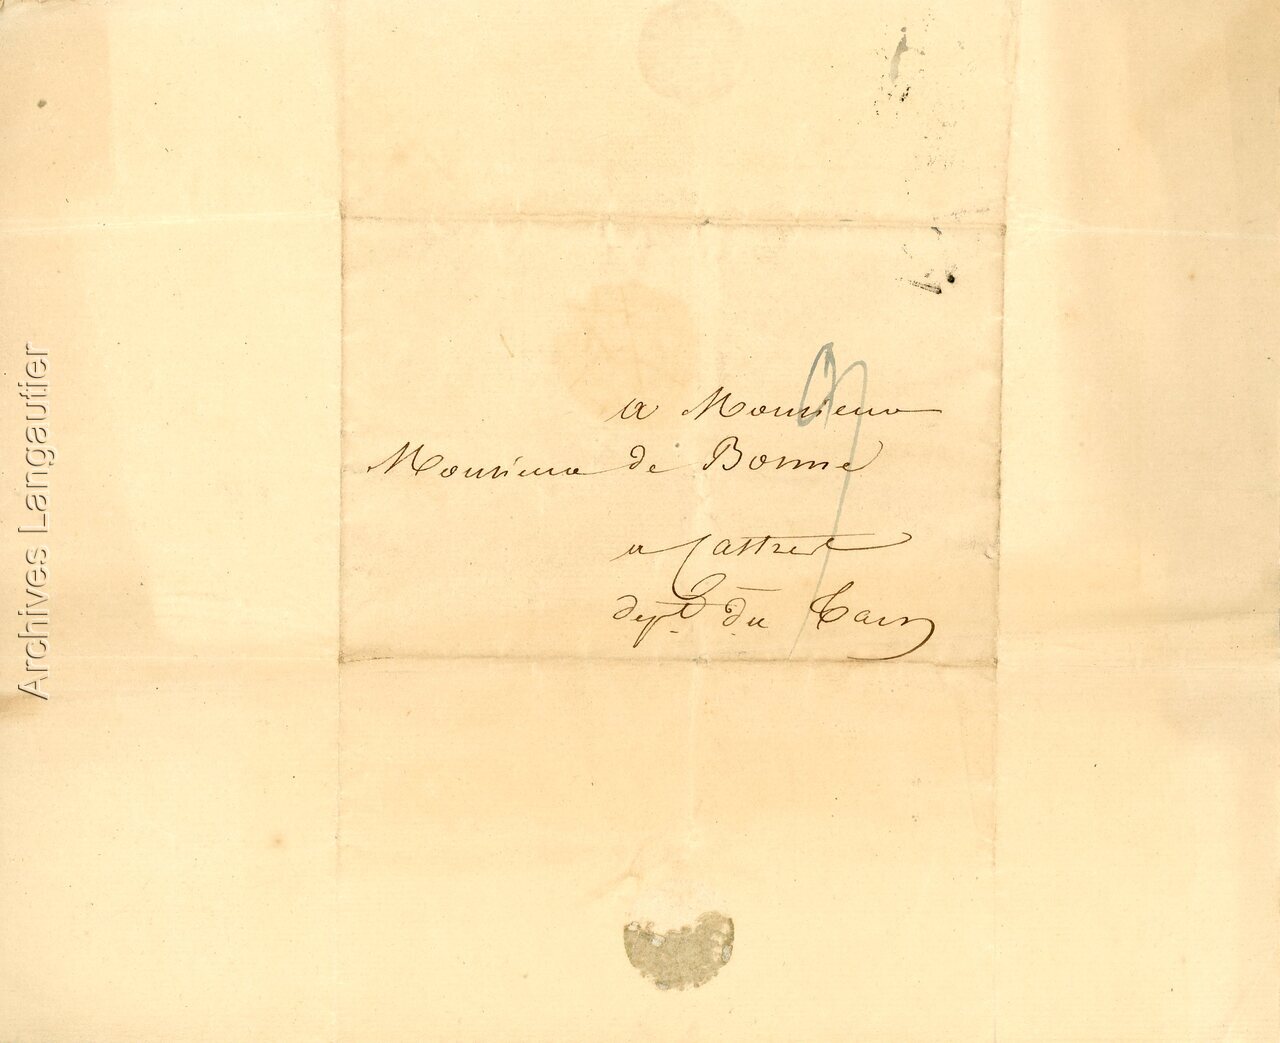 a Monsieur
Monsieur de Bonne
a Castres
dept. du Tarn
Archives Langautier